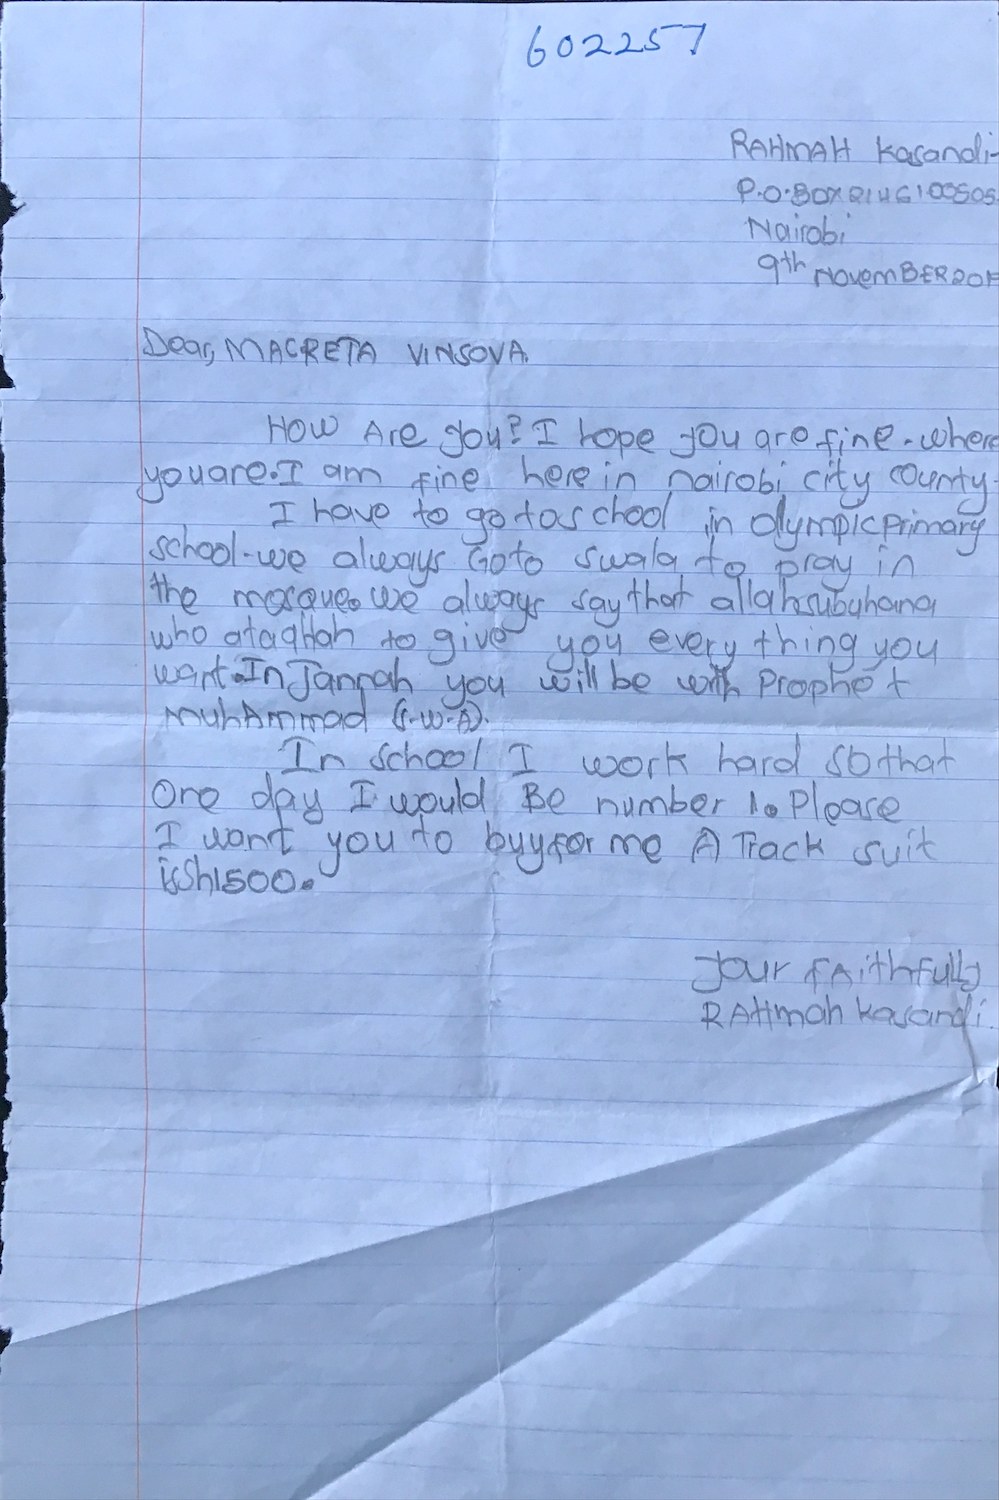 602257
RAHMAH Kasandi
P.O.BOX 21461 00505
Nairobi
9th NovemBER 201
Dear, MACRETA VINSOVA
HOW Are you? I hope you are fine. where
you are. I am fine here in nairobi city county.
I have to go to school in olympic primary
school. we always Go to swala to pray in
the mosque. we always say that allahsubuhana
who ataallah to give you every thing you
want. In Jannah you will be with Prophet
MuhAmmad (S.W.A).
In school I work hard so that
one day I would Be number 1. Please
I want you to buy for me A Track suit
is sh1500.
Your FAithfully
RAHmah Kasandi.